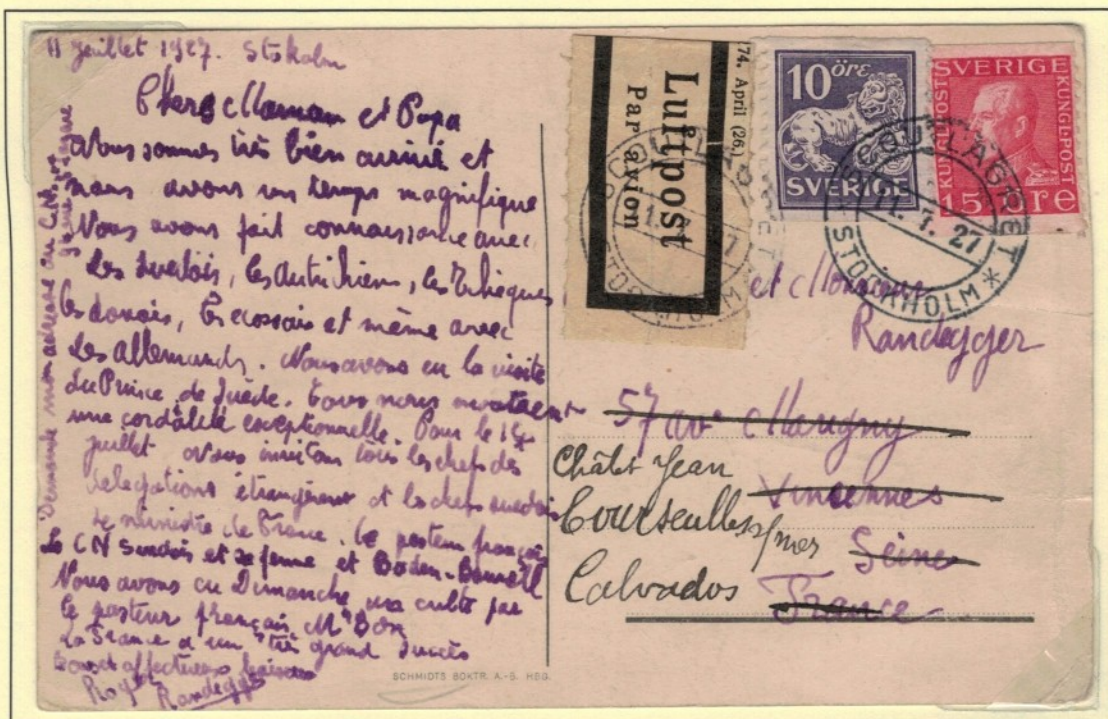 11 juillet 1927. Stokolm
Chers Maman et Papa
Nous sommes très bien arrivé et
nous avons un temps magnifique
Nous avons fait connaissance avec
les suedois, les Autrichiens, les Tchèques
les danois, les ecossais et même avec
les allemands. Nous avons eu la visite
du Prince de Suède. Tous nous montrent
une cordialeté exceptionnelle. Pour le 14
juillet Nous invitons tous les chefs des
delegations étrangères et les chefs suedois
le ministre de France. le pasteur français
Le CN Suedois et sa femme et Baden-Powell
Nous avons eu Dimanche un culte par
le pasteur français Mr
La France a un très grand succès
affectueux baisers
Roger Randegger
Demande mon adresse au C.N.
174. April (26.)
Luftpost
Par avion
10 öre
SVERIGE
SVERIGE
KUNGL. POST
KUNGL. POST
15 öre
SCOUTLÄGRET
11.7.27
STOCKHOLM
SCOUTLÄGRET
11.7.27
STOCKHOLM
et Monsieur
Randegger
57 av Marigny
Vincennes
Seine
France
Châlet Jean
Courseulles s/mer
Calvados
SCHMIDTS BOKTR. A.-B. HBG.